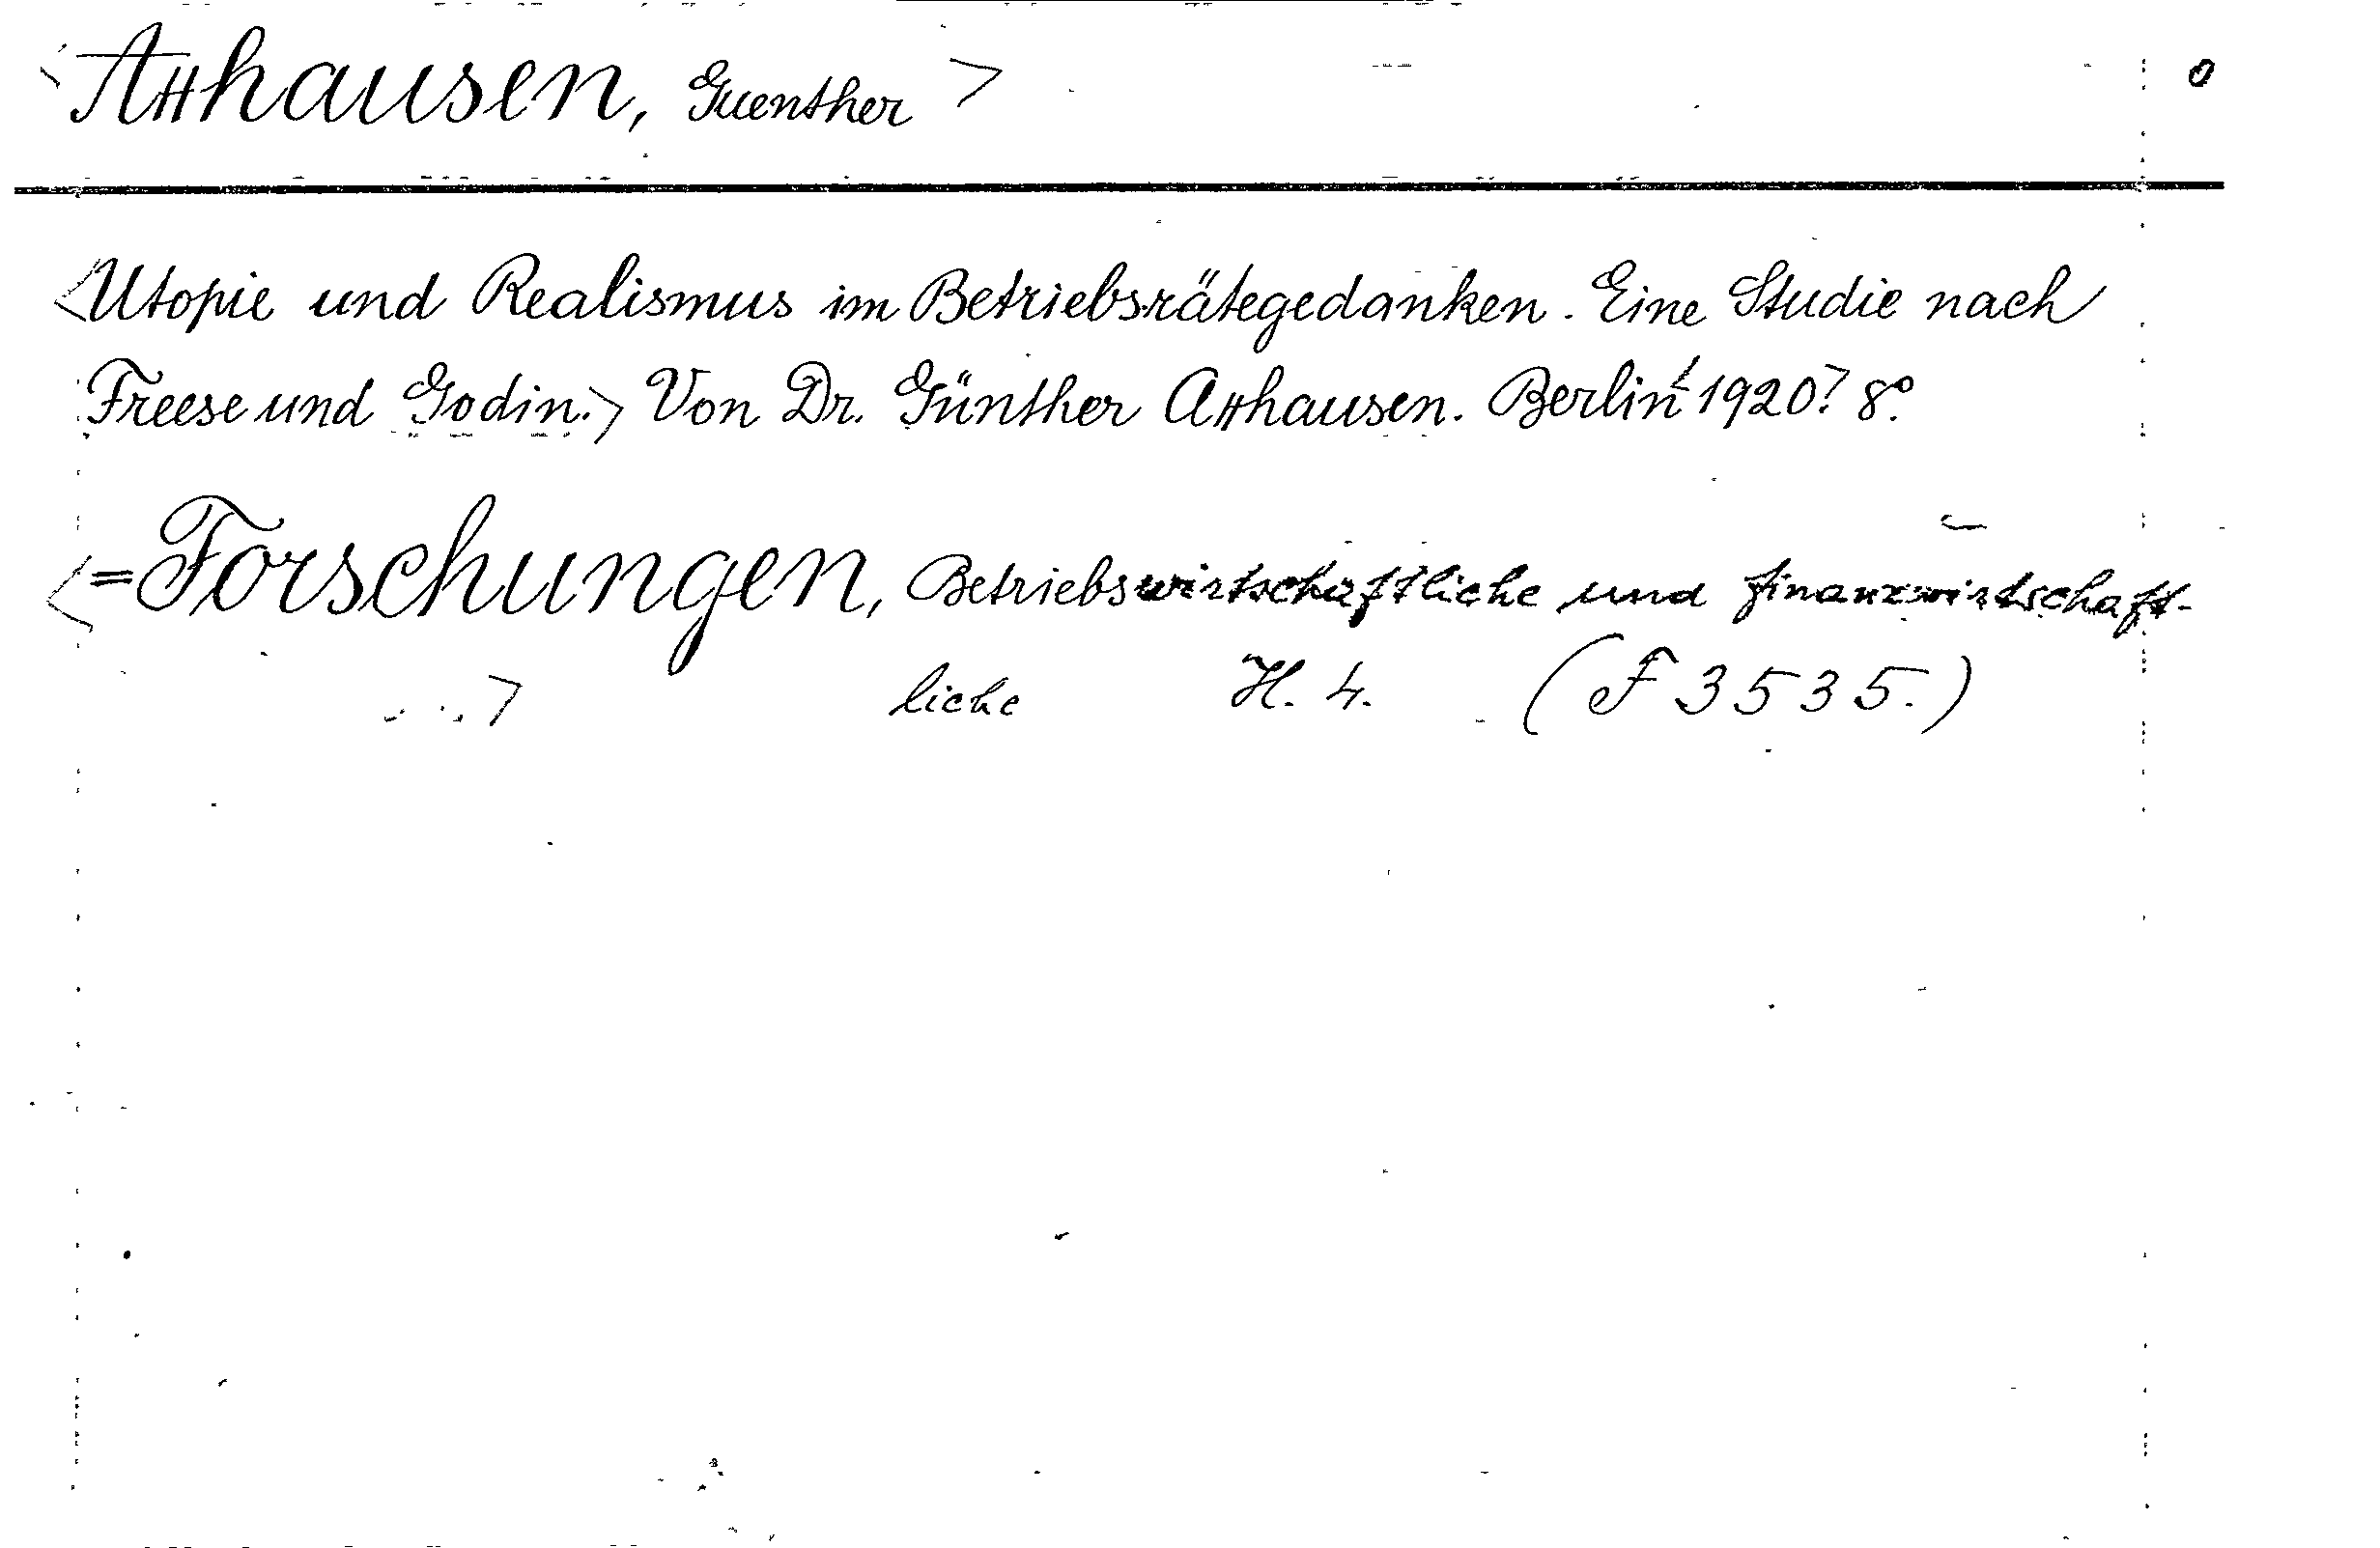 <Atthausen, Guenther>
<Utopie und Realismus im Betriebsrätegedanken. Eine Studie nach
Freese und Godin.> Von Dr. Günther Atthausen. Berlin <1920> 8°.
<=Forschungen, Betriebswirtschaftliche und finanzwirtschaft-
liche> H. 4. (F 3535.)